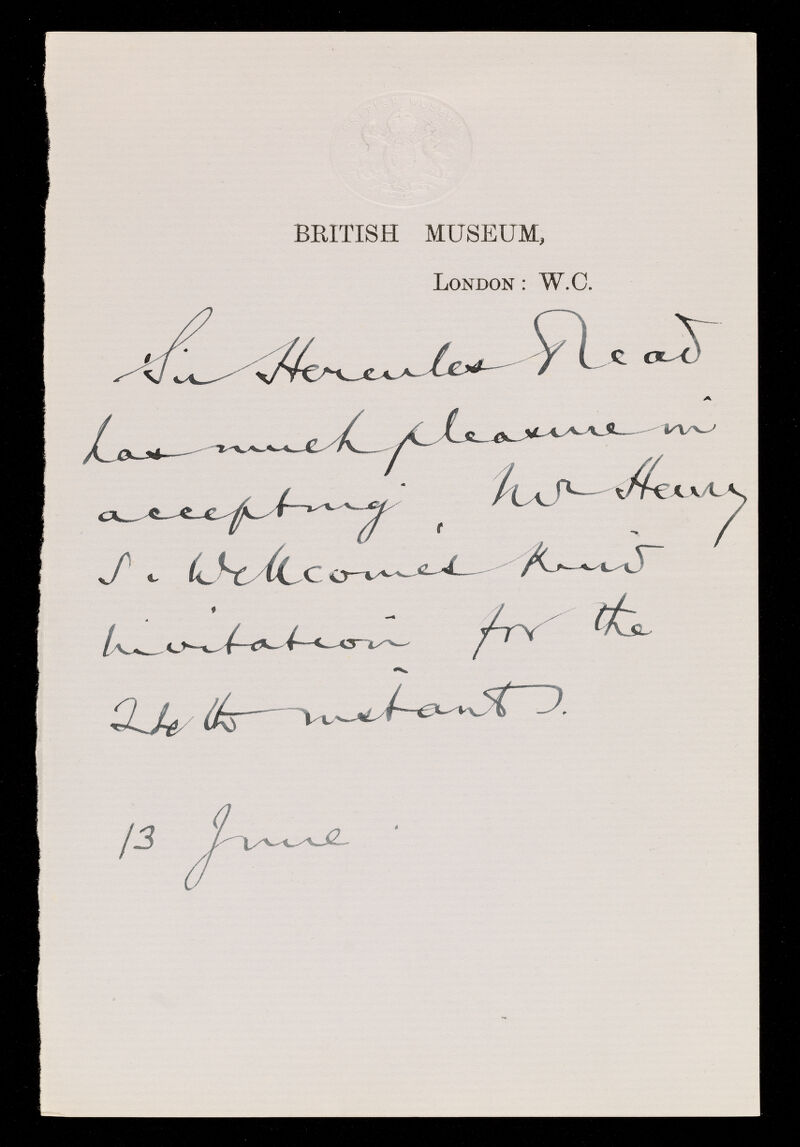 BRITISH MUSEUM
BRITISH MUSEUM,
LONDON: W.C.
Sir Hercules Read
has much pleasure in
accepting Mr Henry
S. Wellcome's kind
invitation for the
24th instant.
13 June.